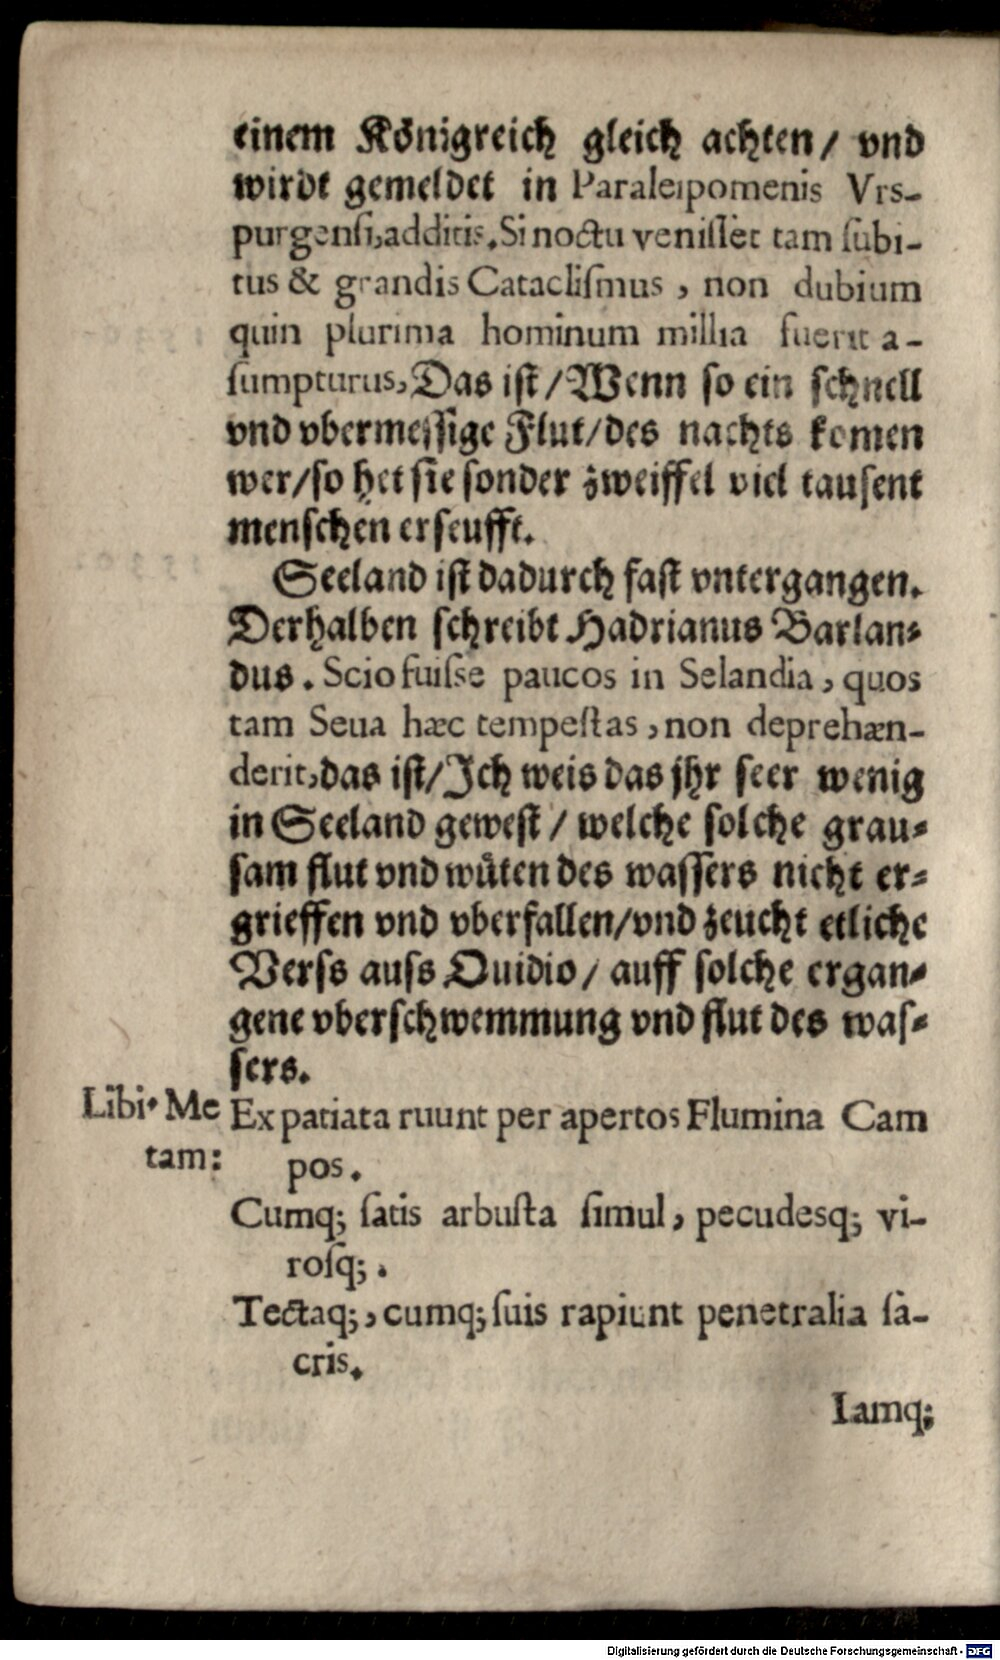 einem Königreich gleich achten / vnd
wirdt gemeldet in Paraleipomenis Vrs-
purgensi, additis. Si noctu venisset tam subi-
tus & grandis Cataclismus, non dubium
quin plurima hominum millia fuerit a-
sumpturus, Das ist / Wenn so ein schnell
vnd vbermessige Flut / des nachts komen
wer / so het sie sonder zweiffel viel tausent
menschen erseufft.
Seeland ist dadurch fast vntergangen.
Derhalben schreibt Hadrianus Barlan-
dus. Scio fuisse paucos in Selandia, quos
tam Seua hæc tempestas, non deprehæn-
derit, das ist / Ich weis das jhr seer wenig
in Seeland gewest / welche solche grau-
sam flut vnd wüten des wassers nicht er-
grieffen vnd vberfallen / vnd zeucht etliche
Verss auss Ouidio / auff solche ergan-
gene vberschwemmung vnd flut des was-
sers.
Libi. Me
tam:
Expatiata ruunt per apertos Flumina Cam
pos.
Cumq; satis arbusta simul, pecudesq; vi-
rosq; .
Tectaq;, cumq; suis rapiunt penetralia sa-
cris.
Iamq;
Digitalisierung gefördert durch die Deutsche Forschungsgemeinschaft - DFG